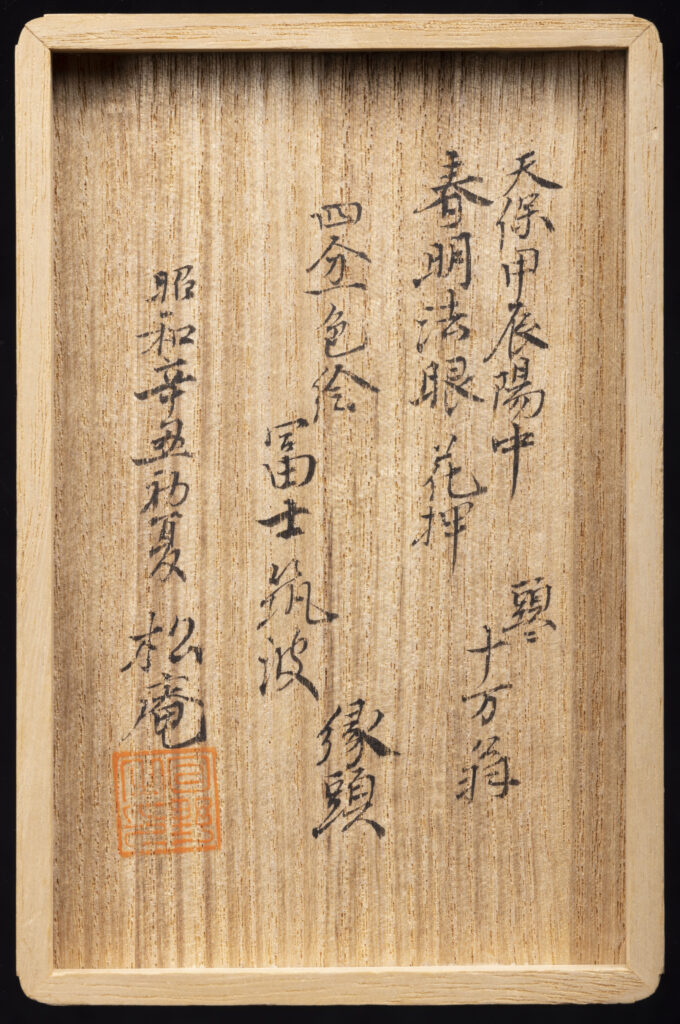 天保甲辰陽中
春明法眼 花押
頭ニ
十万翁
四分一色絵
冨士筑波
縁頭
昭和辛丑初夏 松庵